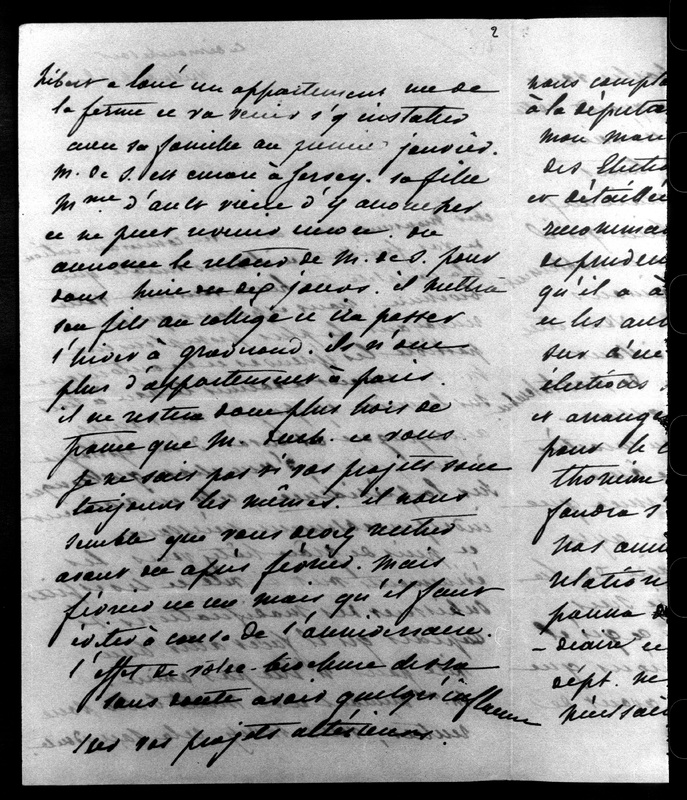 2
hibert a loué un appartement rue de
la ferme et va venir s'y installer
avec sa famille au premier janvier.
M. de S. est encore à Jersey. Sa fille
Mme d'ault vient d'y accoucher
et ne peut revenir encore. on
annonce le retour de M. de S. pour
dans huit ou dix jours. il mettra
son fils au collège et ira passer
l'hiver à grauaud. ils n'ont
plus d'appartement à paris.
il ne restera donc plus hors de
france que M. duch. et vous.
Je ne sais pas si vos projets sont
toujours les mêmes. il nous
semble que vous devez rentrer
avant ou après février. mais
février est un mois qu'il faut
éviter à cause de l'anniversaire.
l'effet de votre brochure devra
sans doute avoir quelqu'influence
sur vos projets ultérieurs.
nous compt
à la députa
mon mar
des Electi
et détaillé
recomman
de pruden
qu'il a à
et les au
sur d'
élections
et arrange
pour le
thomim
faudra s'
Nos ami
relation
panna
-diaire et
dépt. ne
nécessai